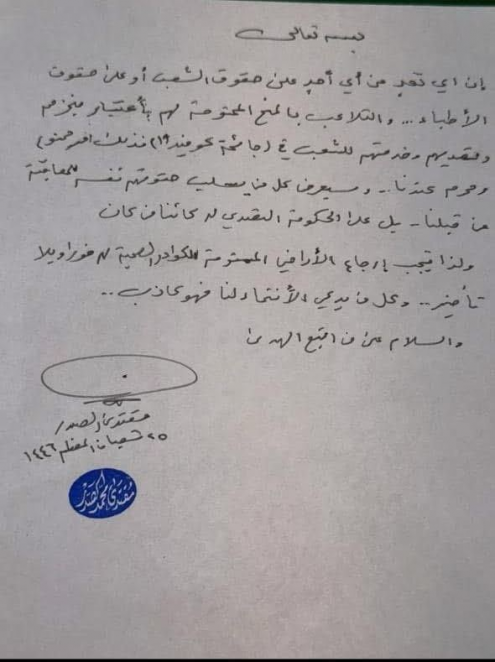 بسمه تعالى
إن اي تعدٍ من أي أحدٍ على حقوق الشعب أو على حقوق
الأطباء... والتلاعب بالمنح الممنوحة لهم بأعتبار
وخدمتهم للشعب في (جائحة كوفيد ١٩) فذلك امر ممنوع
ومحرم عندنا.. وسيعرض كل من يسلب حقوقهم نفسه للمعاقبة
من قبلنا.. بل على الحكومة التصدي له كائناً من كان
ولذا يجب إرجاع الأراضي الممنوحة للكوادر الصحية لهم فوراً وبلا
تأخير.. وكل من يدعي الأنتماء لنا فهو كاذب..
والسلام على من اتبع الهدى
مقتدى الصدر
٢٥ شعبان المعظم ١٤٤٦
مقتدى محمد الصدر